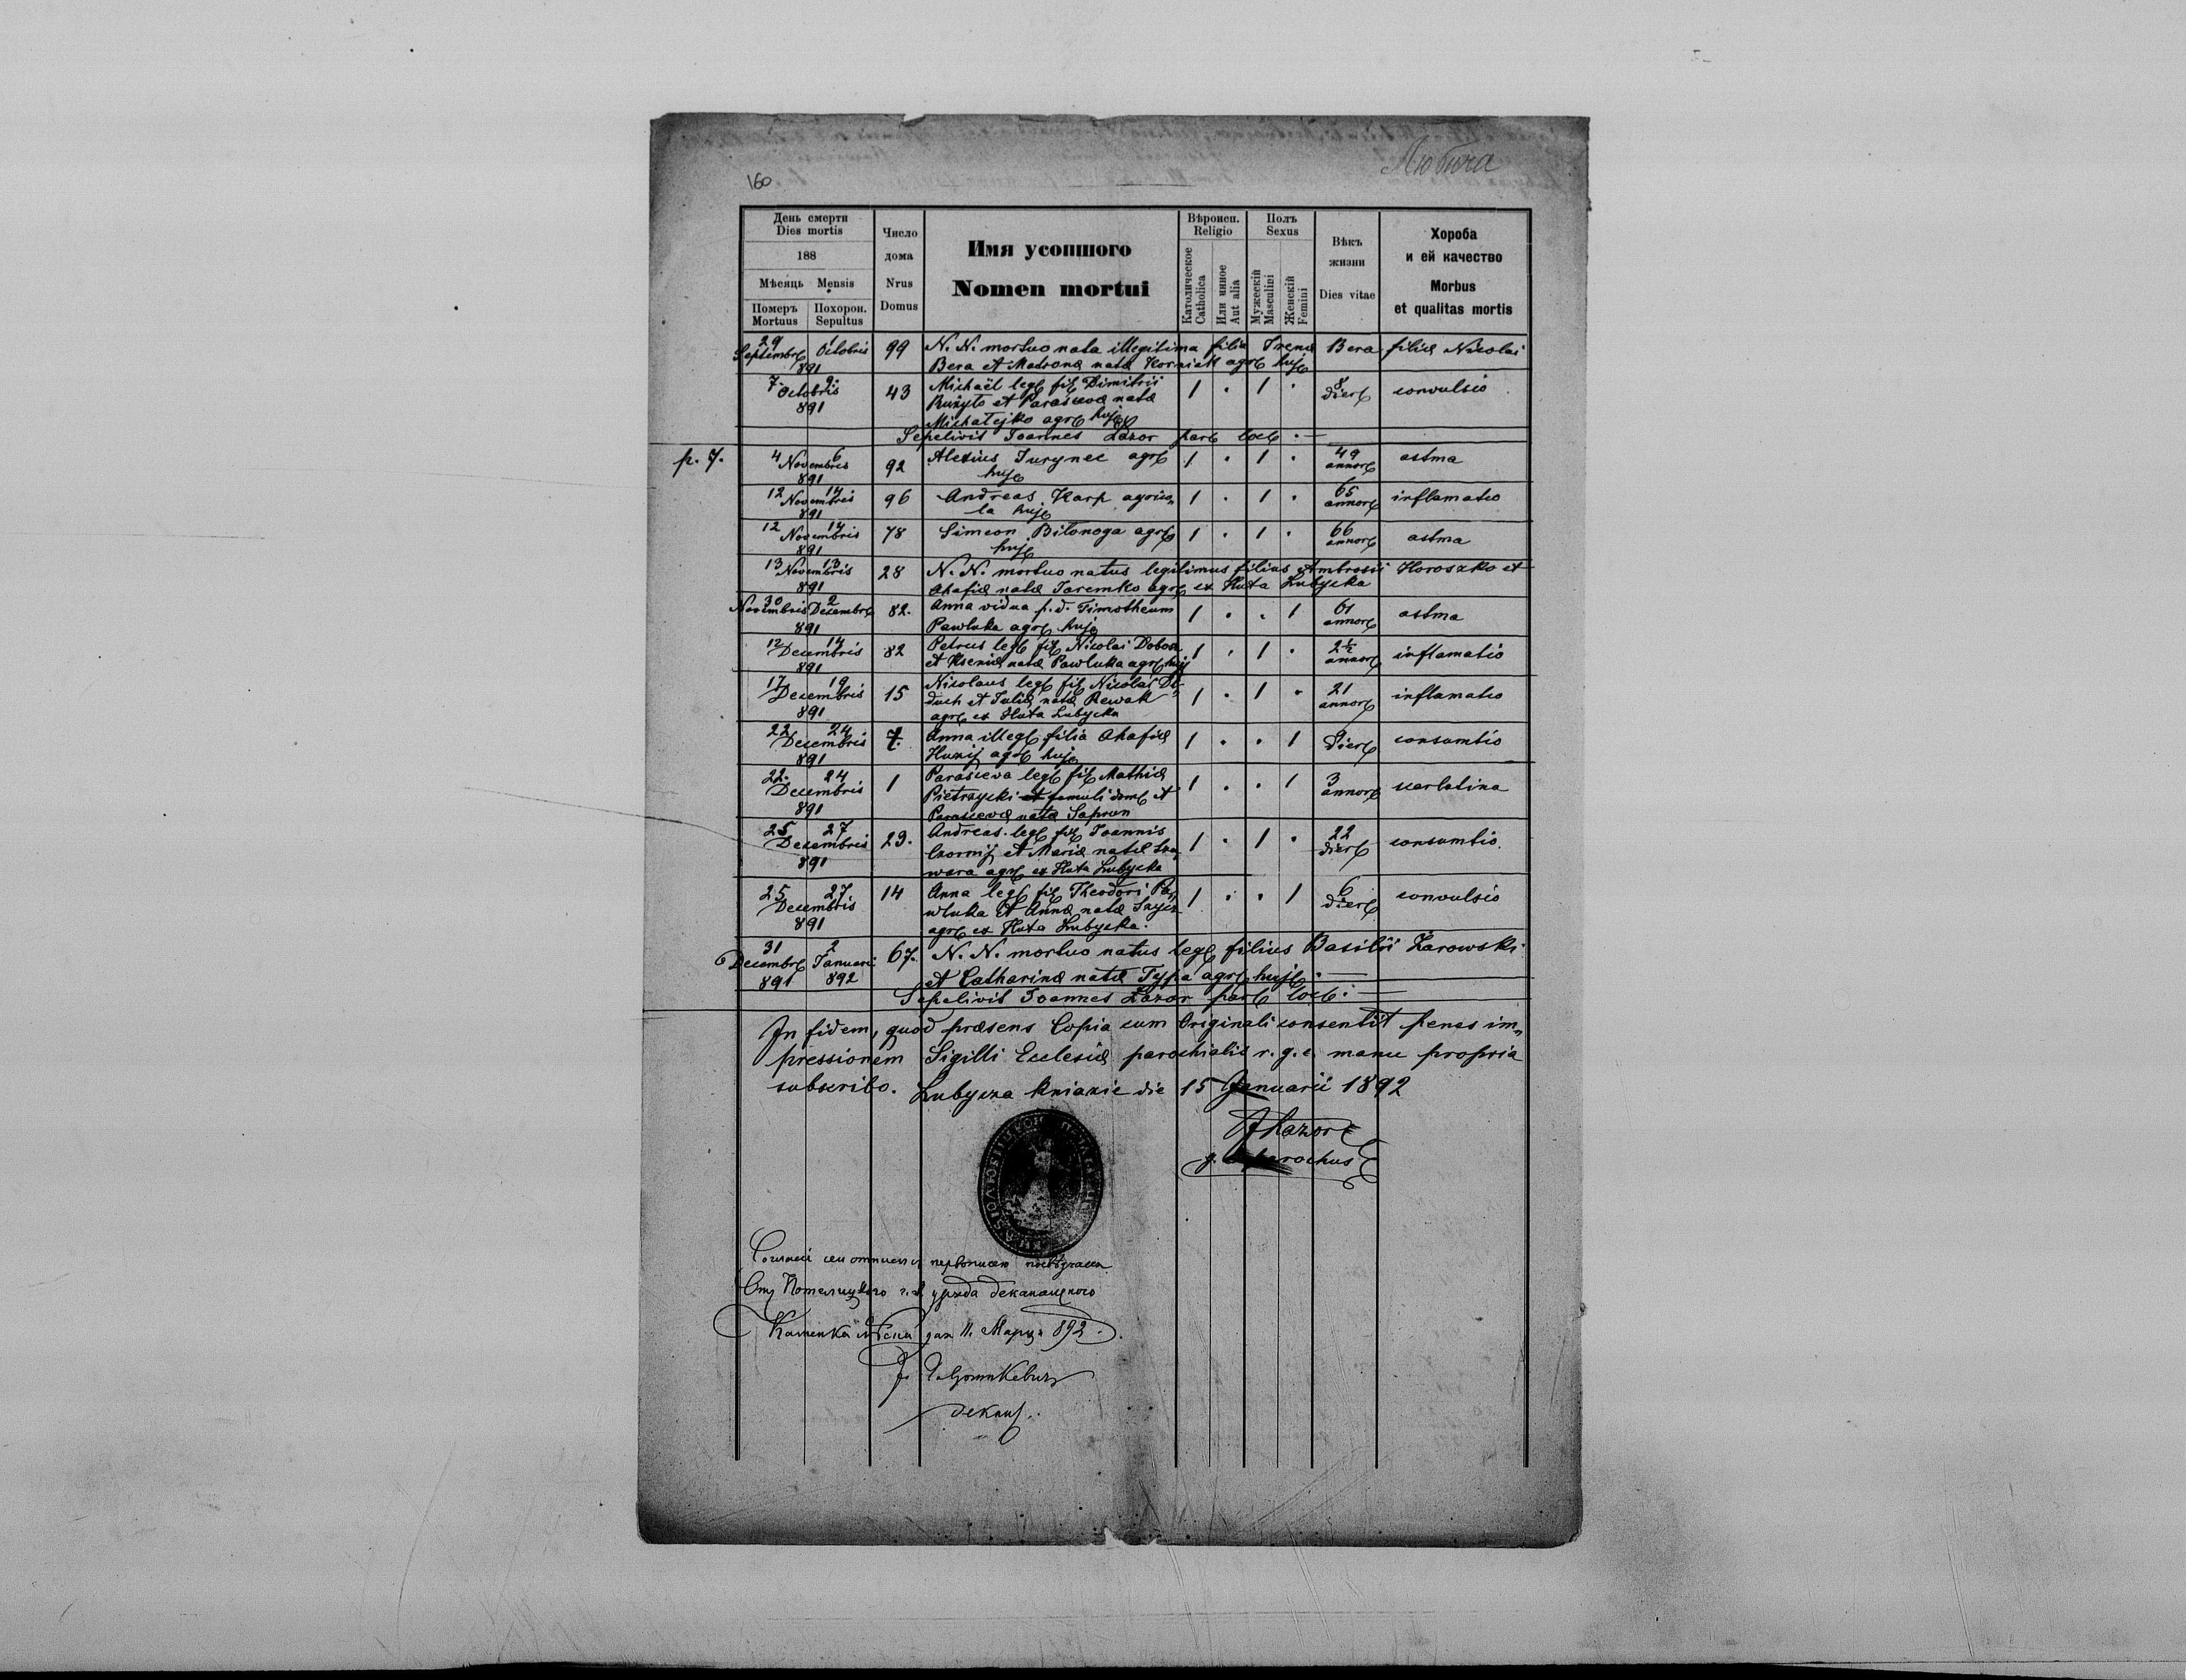 160
Любича
День смерти
Dies mortis
188
Мѣсяць Mensis
Померъ Похорон.
Mortuus Sepultus
Число
дома
Nrus
Domus
Имя усопшого
Nomen mortui
Вѣроисп.
Religio
Католическое
Catholica
Или инное
Aut alia
Полъ
Sexus
Мужескій
Masculini
Женскій
Femini
Вѣкъ
жизни
Dies vitae
Хороба
и ей качество
Morbus
et qualitas mortis
29 1
Septembr Octobris 99 N. N. mortuo nata illegitima filia Irena Bera filia Nicolai
891 Bera et Matrona nata Korniak agr huj
7. 9. Michaël leg fil Dimitrii
Octobris 43 Rużyło et Parasceva nata 1 . 1 . 8 dier convulsio
891 Michałejko agr huj
Sepelivit Joannes Łazor par loc . —
p. 7. 4 6
Novembris 92 Alexius Jurynec agr 1 . 1 . 49 annor astma
891 huj
12 14
Novembris 96 Andreas Karp agrico„ 1 . 1 . 65 annor inflamatio
891 la huj
12 14
Novembris 78 Simeon Biłonoga agr 1 . 1 . 66 annor astma
891 huj
13 13
Novembris 28 N. N. mortuo natus legitimus filius Ambrosii Horoszko et
891 Ahafia nata Jaremko agr ex Huta Lubycka
30 2
Novembris Decembr 82. Anna vidua p. d. Timotheum 1 . . 1 61 annor astma
891 Pawluka agr huj
12 14
Decembris 82 Petrus leg fil Nicolai Dobosz 1 . 1 . 2½ annor inflamatio
891 et Ksenia nata Pawluka agr huj
17 19 Nicolaus leg fil Nicolai Di„
Decembris 15 duch et Julia nata Rewak 1 . 1 . 21 annor inflamatio
891 agr ex Huta Lubycka
22 24
Decembris 7. Anna illeg filia Ahafia 1 . . 1 dier consumtio
891 agr huj
22. 24 Parasceva leg fil Mathia
Decembris 1 Pietrzycki et famuli dom et 1 . . 1 3 annor scarlatina
891 Parasceva nata Saprun
25 27 Andreas leg fil Joannis
Decembris 29. Czornij et Maria nata 1 . 1 . 22 dier consumtio.
891 wara agr ex Huta Lubycka
25 27 14 Anna leg fil Theodori Pa„
Decembris wluka et Anna nata 1 . . 1 6 dier convulsio
891 agr ex Huta Lubycka.
31 2
Decembr Januarii 67. N. N. mortuo natus leg filius Basilii Żarowski
891 892 et Catharina nata Typa agr huj. —
Sepelivit Joannes Łazor par loc. —
In fidem, quod præsens Copia cum Originali consentit penes im„
pressionem Sigilli Ecclesiæ parochialis r. g. c. manu propria
subscribo. Lubycza kniazie die 15 Januarii 1892
JŁazor
parochus
отъ Потелицкого г. к. уряда деканацкого
Каменка дня 11. Марця 892.
декан.